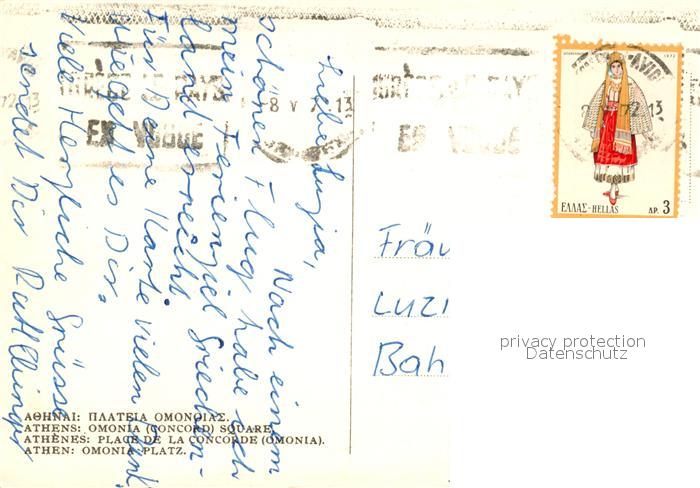 Liebe Luzia,
Nach einem
schönen Flug habe ich
mein Ferienziel Griechen-
land erreicht.
Für Deine Karte vielen Dank.
Wie geht es Dir.
Viele Herzliche Grüsse
sendet Dir Ruth
ΑΘΗΝΑΙ: ΠΛΑΤΕΙΑ ΟΜΟΝΟΙΑΣ.
ATHENS: OMONIA (CONCORD) SQUARE.
ATHÈNES: PLACE DE LA CONCORDE (OMONIA).
ATHEN: OMONIA PLATZ.
EN VOGUE
8 V 13
EN VOGUE
72 13
ΕΛΛΑΣ-HELLAS ΔΡ. 3
Fräu
Luzi
Bah
privacy protection
Datenschutz